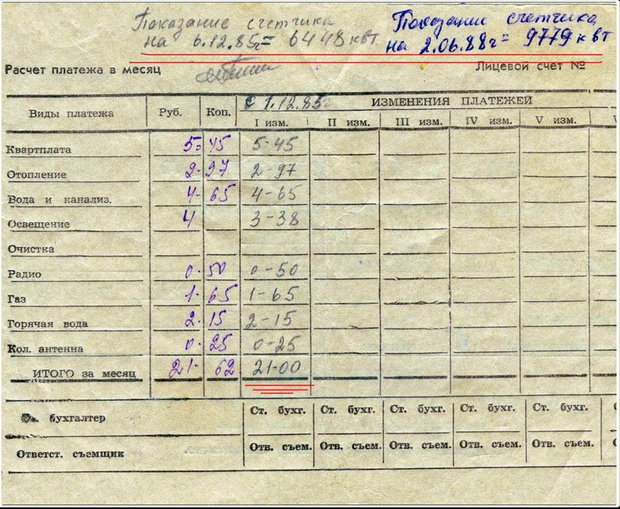 Показание счетчика
на 6.12.85г = 6448 квт
Показание счетчика
на 2.06.88г = 9779 квт
Расчет платежа в месяц
Лицевой счет №
Виды платежа Руб. Коп. с 1.12.85г ИЗМЕНЕНИЯ ПЛАТЕЖЕЙ
I изм. II изм. III изм. IV изм. V изм.
Квартплата 5 = 45 5-45
Отопление 2-97 2-97
Вода и канализ. 4-65 4-65
Освещение 4 3-38
Очистка
Радио 0-50 0-50
Газ 1-65 1-65
Горячая вода 2-15 2-15
Кол. антенна 0-25 0-25
ИТОГО за месяц 21-62 21-00
бухгалтер Ст. бухг. Ст. бухг. Ст. бухг. Ст. бухг. Ст. бухг.
Ответст. съемщик Отв. съем. Отв. съем. Отв. съем. Отв. съем. Отв. съем.